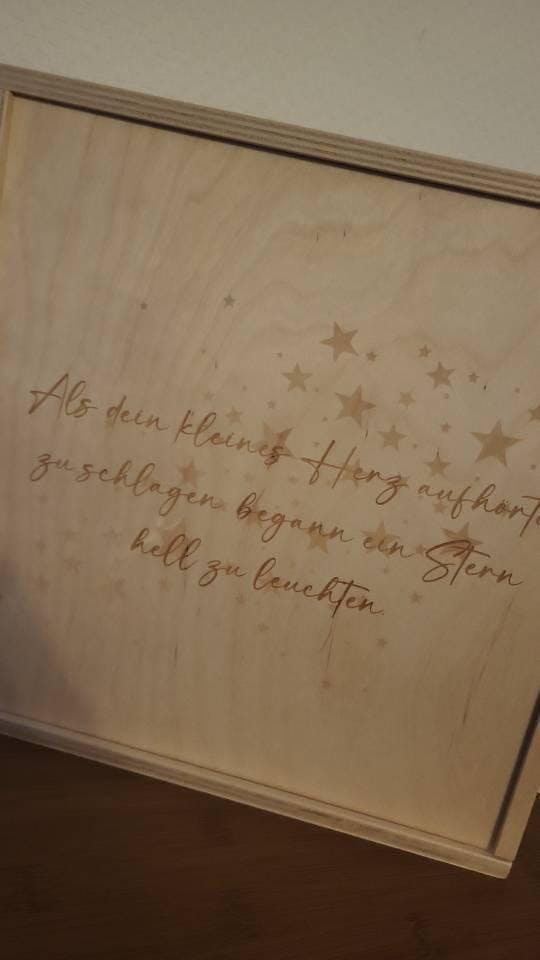 Als dein kleines Herz aufhörte
zu schlagen begann ein Stern
hell zu leuchten